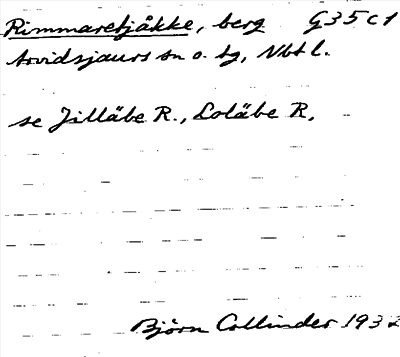 Rimmaretjåkke, berg G35c1
Arvidsjaurs sn o. tg, Nbtl.
se Jilläbe R., Loläbe R.
Björn Collinder 1932